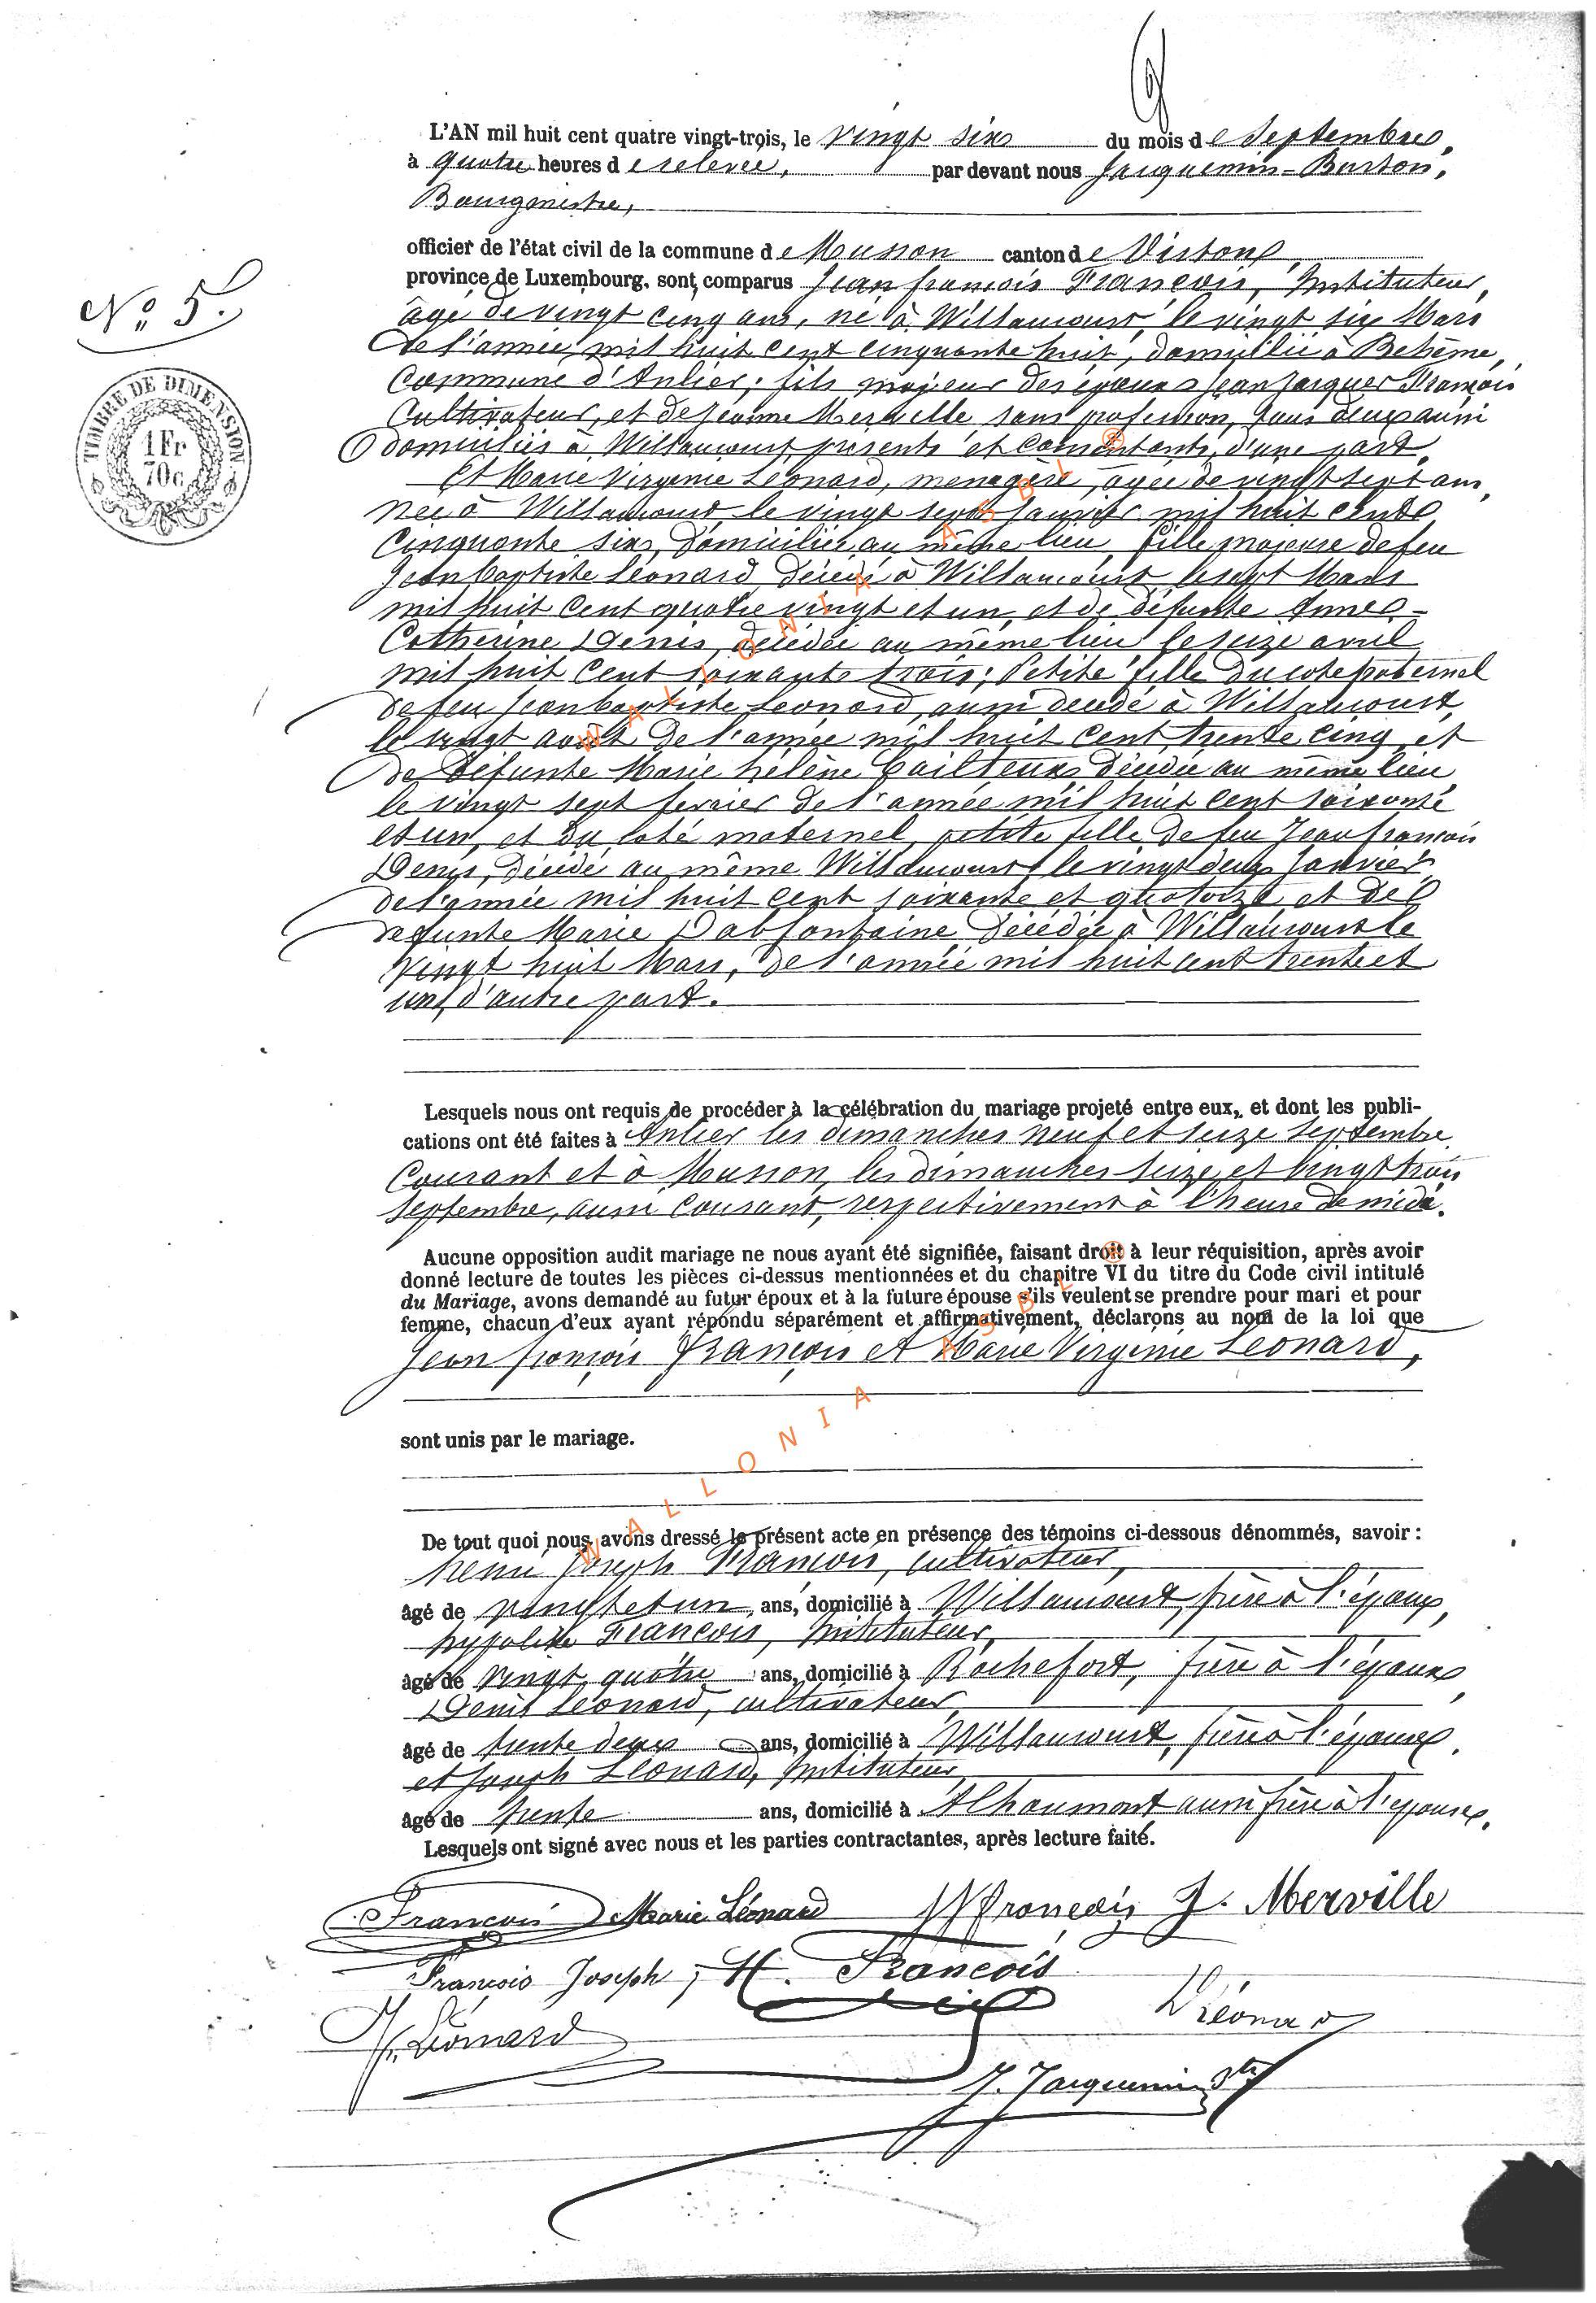 L'AN mil huit cent quatre vingt-trois, le vingt six du mois de Septembre,
à quatre heures de relevée, par devant nous Jacquemin-Burton,
Bourgmestre,
officier de l'état civil de la commune de Musson canton de Virton,
province de Luxembourg, sont comparus Jean françois François, Instituteur,
âgé de vingt cinq ans, né à Willancourt, le vingt six Mars
de l'année mil huit cent cinquante huit, domicilié à Behême,
Commune d'Anlier; fils majeur des époux Jean Jacques François
Cultivateur, et de Jeanne Merville sans profession, tous deux aussi
domiciliés à Willancourt présents et consentants, d'une part,
Et Marie Virginie Léonard, menagère, agée de vingt sept ans,
née à Willancourt le vingt sept Janvier mil huit cent
cinquante six, Domiciliée au même lieu fille majeure de feu
Jean baptiste Léonard, Décédé à Willancourt le sept Mars
N° 5.
TIMBRE DE DIMENSION
1 Fr
70 c
mil huit cent quatre vingt et un, et de défunte Anne-
Catherine Denis, décédée au même lieu le seize avril
mil huit cent soixante trois; Petite fille du coté paternel
de feu Jean baptiste Léonard, aussi décédé à Willancourt,
le vingt août de l'année mil huit cent trente cinq et
de Défunte Marie hélène Décédée au même lieu
le vingt sept fevrier de l'année mil huit cent soixante
et un, et du coté maternel, petite fille de feu Jean françois
Denis, décédé au même Willancourt le vingt deux Janvier
de l'année mil huit cent soixante et quatorze et de
défunte Marie Dabfontaine Décédée à Willancourt le
vingt huit Mars, de l'année mil huit cent trente et
un, d'autre part.
Lesquels nous ont requis de procéder à la célébration du mariage projeté entre eux, et dont les publi-
cations ont été faites à Anlier les dimanches neuf et seize septembre
Courant et à Musson, les dimanches seize et vingt trois
septembre, aussi courant, respectivement à l'heure de midi.
Aucune opposition audit mariage ne nous ayant été signifiée, faisant droit à leur réquisition, après avoir
donné lecture de toutes les pièces ci-dessus mentionnées et du chapitre VI du titre du Code civil intitulé
du Mariage, avons demandé au futur époux et à la future épouse s'ils veulent se prendre pour mari et pour
femme, chacun d'eux ayant répondu séparément et affirmativement, déclarons au nom de la loi que
Jean françois François et Marie Virginie Léonard,
sont unis par le mariage.
De tout quoi nous avons dressé le présent acte en présence des témoins ci-dessous dénommés, savoir :
henri Joseph François, cultivateur,
âgé de vingt et un ans, domicilié à Willancourt, frère à l'époux,
hypolite François, Instituteur,
âgé de vingt quatre ans, domicilié à Rochefort, frère à l'époux,
Denis Léonard, cultivateur
âgé de trente deux ans, domicilié à Willancourt, frère à l'épouse,
et Joseph Léonard, Instituteur,
âgé de trente ans, domicilié à Alhoumont aussi frère à l'épouse.
Lesquels ont signé avec nous et les parties contractantes, après lecture faite.
François Marie Léonard JJ françois J. Merville
François Joseph, H. François
J. Léonard D Léonard
J. Jacquemin Btn
WALLONIA ASBL ®
WALLONIA ASBL ®